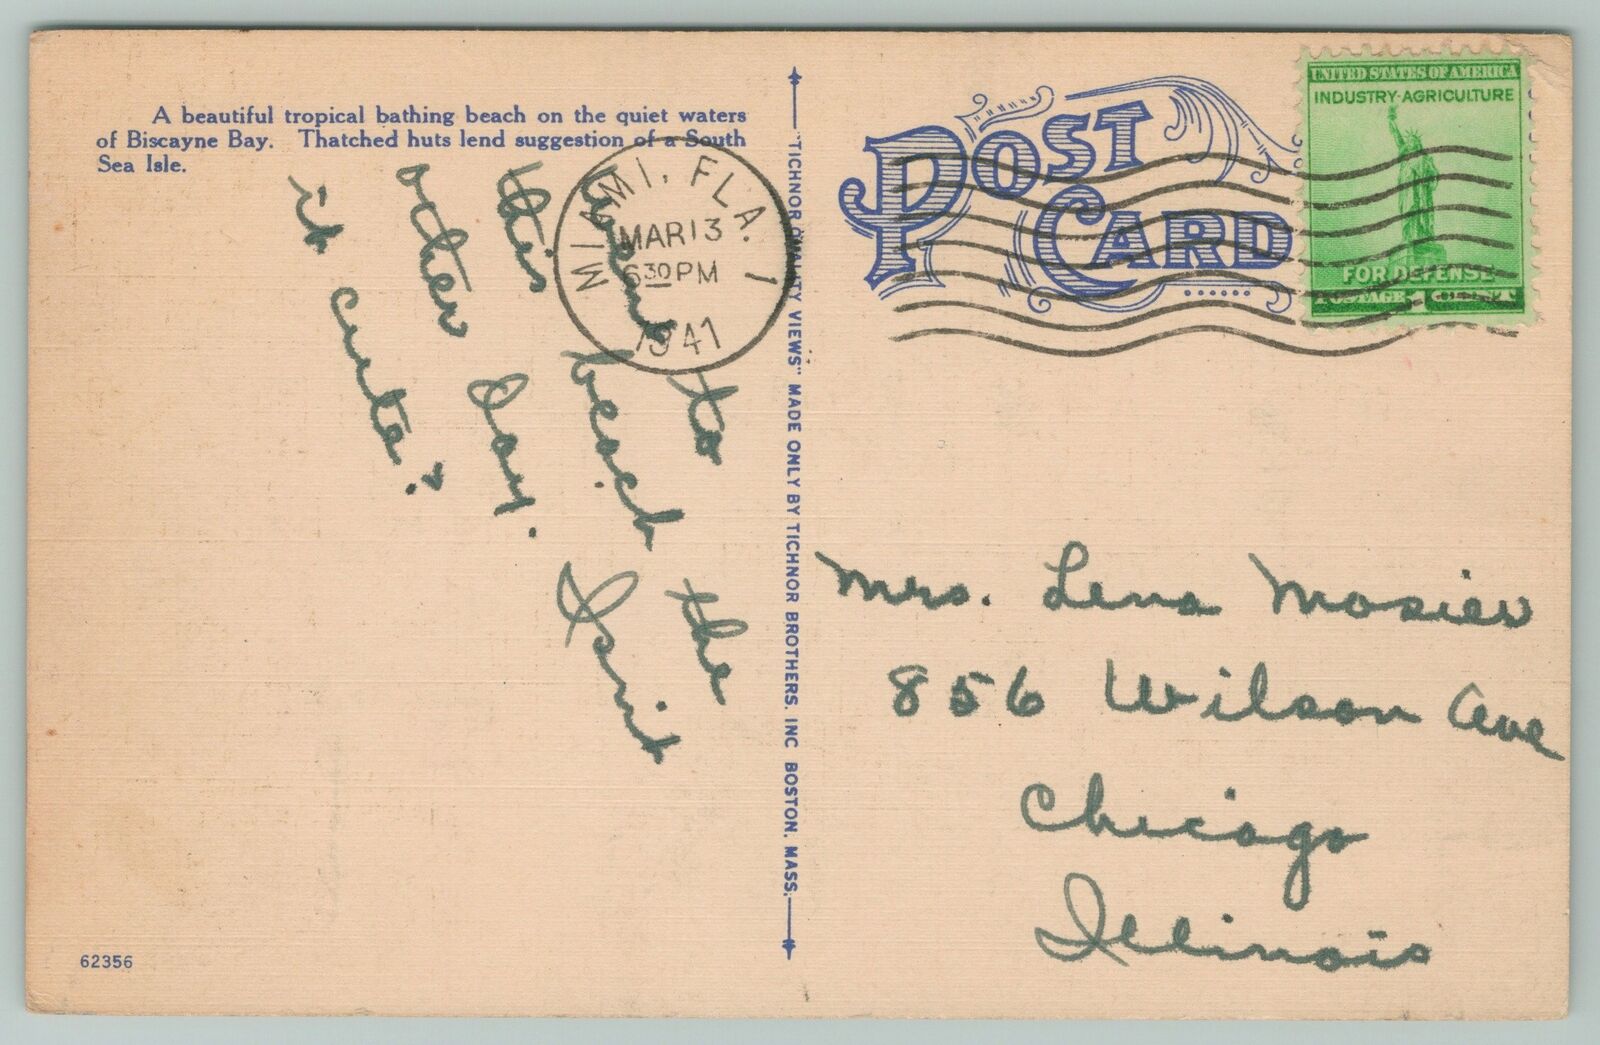 A beautiful tropical bathing beach on the quiet waters
of Biscayne Bay. Thatched huts lend suggestion of a South
Sea Isle.
Went to the
this beach
other day. Isn't
it cute?
62356
"TICHNOR QUALITY VIEWS" MADE ONLY BY TICHNOR BROTHERS, INC BOSTON, MASS.
MIAMI, FLA. 1
MAR 13
6 30 PM
1941
POST
CARD
UNITED STATES OF AMERICA
INDUSTRY-AGRICULTURE
FOR DEFENSE
POSTAGE 1 CENT
Mrs. Lena Mosier
856 Wilson Ave
Chicago
Illinois